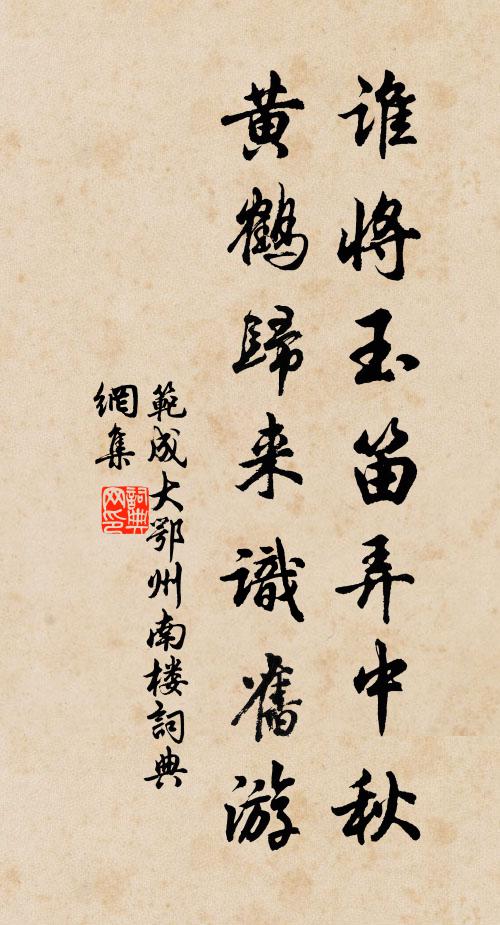 谁将玉笛弄中秋
黄鹤歸来識舊游
範成大鄂州南楼詞典
網集
詞典
网印